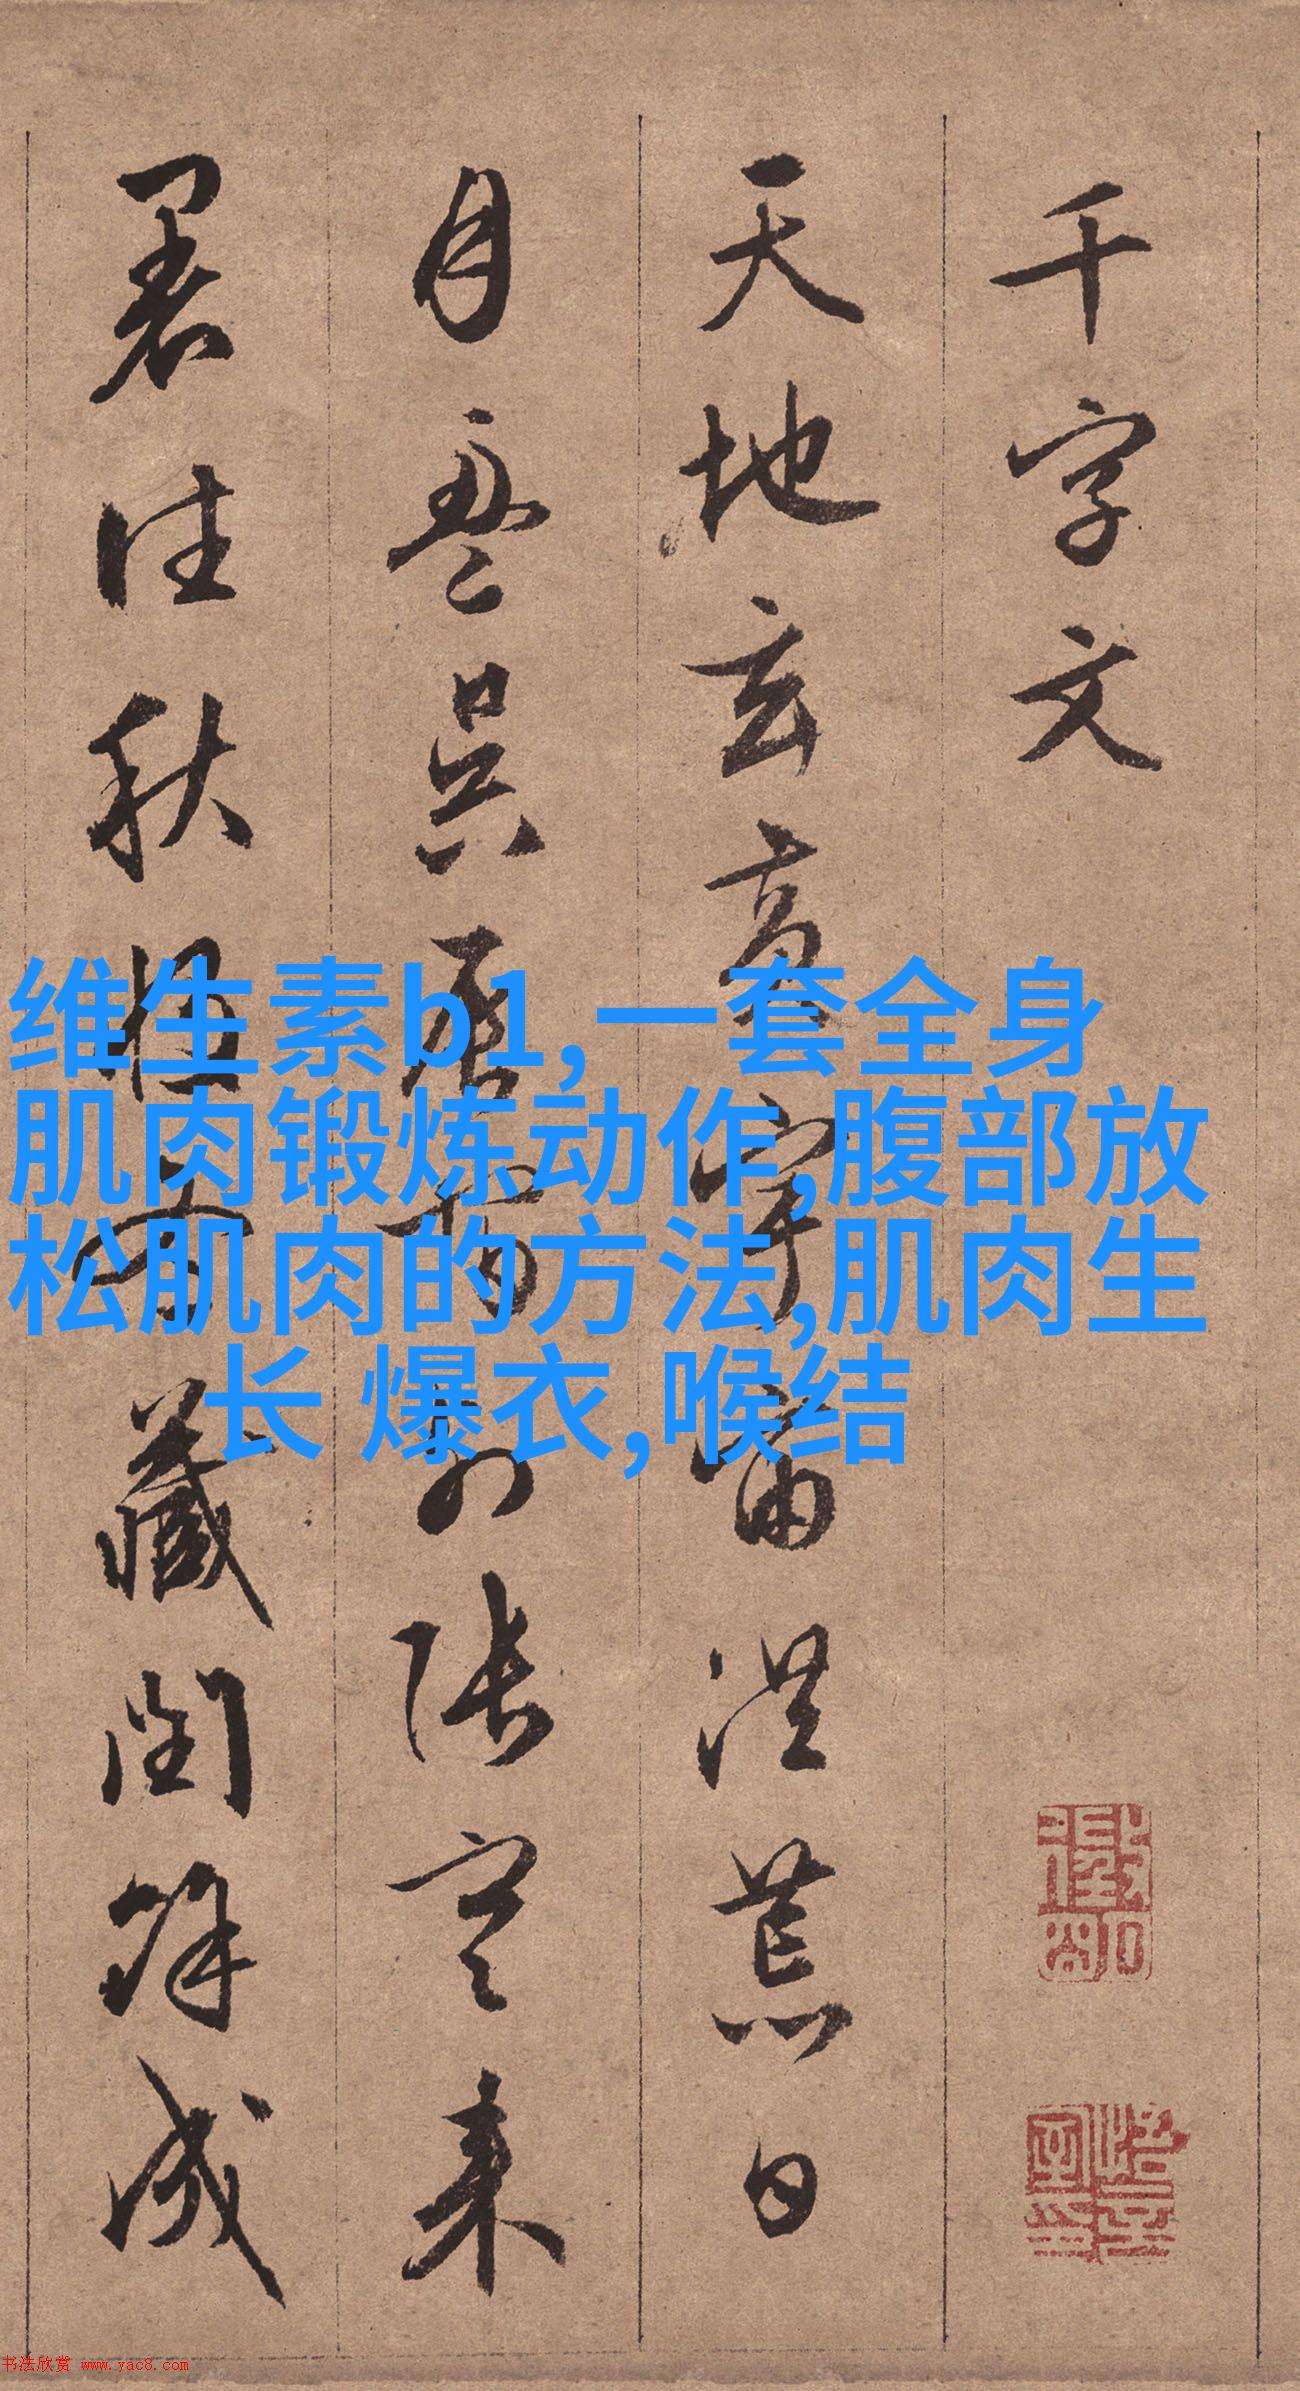 千字文
天地玄黄宇宙洪荒日
月盈昃辰宿列張寒来
暑往秋收冬藏閏餘成
维生素b1,一套全身
肌肉锻炼动作,腹部放
松肌肉的方法,肌肉生
长 爆衣,喉结
书法欣赏 www.yac8.com